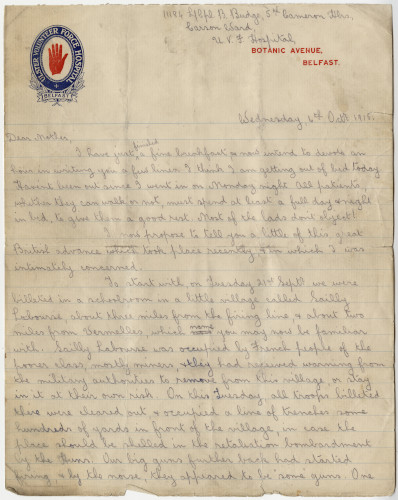 11186 L/Cpl B. Budge, 5th Cameron Hdrs,
Carson Ward,
U.V.F. Hospital
BOTANIC AVENUE,
BELFAST.
ULSTER VOLUNTEER FORCE HOSPITAL
BELFAST
Wednesday 6th Octr 1915.
Dear Mother,
finished
I have just a fine breakfast & now intend to devote an
hour in writing you a few lines. I think I am getting out of bed today.
Havent been out since I went in on Monday night. All patients,
whether they can walk or not, must spend at least a full day & night
in bed, to give them a good rest. Most of the lads don't object!
I now propose to tell you a little of this great
British advance which took place recently & in which I was
intimately concerned.
To start with, on Tuesday 21st Septr we were
billeted in a schoolroom in a little village called Sailly
Labourse, about three miles from the firing line & about two
miles from Vermelles, which name you may now be familiar
with. Sailly Labourse was occupied by French people of the
poorer class, mostly miners, & they had received warning from
the military authorities to remove from this village or stay
in it at their own risk. On this Tuesday, all troops billeted
there were cleared out & occupied a line of trenches some
hundreds of yards in front of the village, in case the
place should be shelled in the retaliation bombardment
by the Huns. Our big guns further back had started
firing, & by the noise, they appeared to be 'some' guns. One